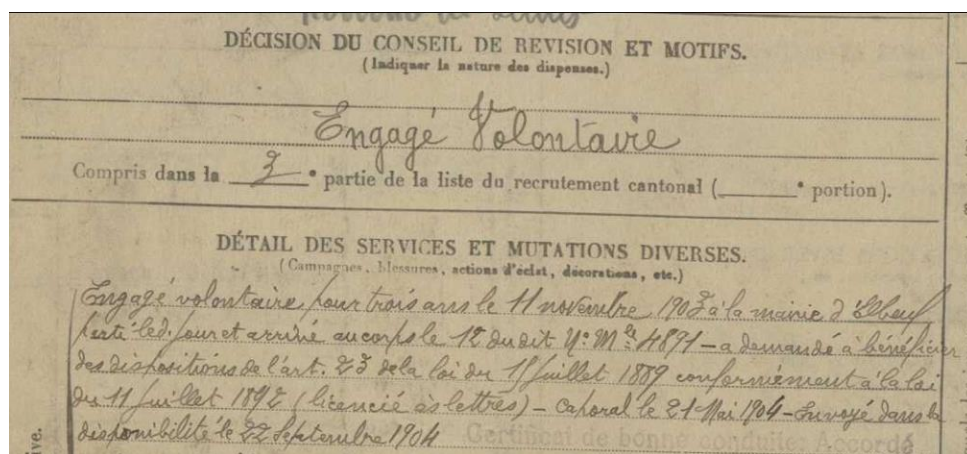 DÉCISION DU CONSEIL DE REVISION ET MOTIFS.
(Indiquer la nature des dispenses.)
Engagé Volontaire
Compris dans la 3 e partie de la liste du recrutement cantonal ( e portion).
DÉTAIL DES SERVICES ET MUTATIONS DIVERSES.
(Campagnes, blessures, actions d'éclat, décorations, etc.)
Engagé volontaire pour trois ans le 11 novembre 1903 à la mairie d'Elbeuf
porté led. jour et arrivé au corps le 12 dudit N° Mle 4891 – a demandé à bénéficier
des dispositions de l'art. 23 de la loi du 15 juillet 1889 conformément à la loi
du 11 juillet 1892 (licencié ès lettres) – Caporal le 21 Mai 1904 – Envoyé dans la
disponibilité le 22 Septembre 1904 Certificat de bonne conduite: Accordé